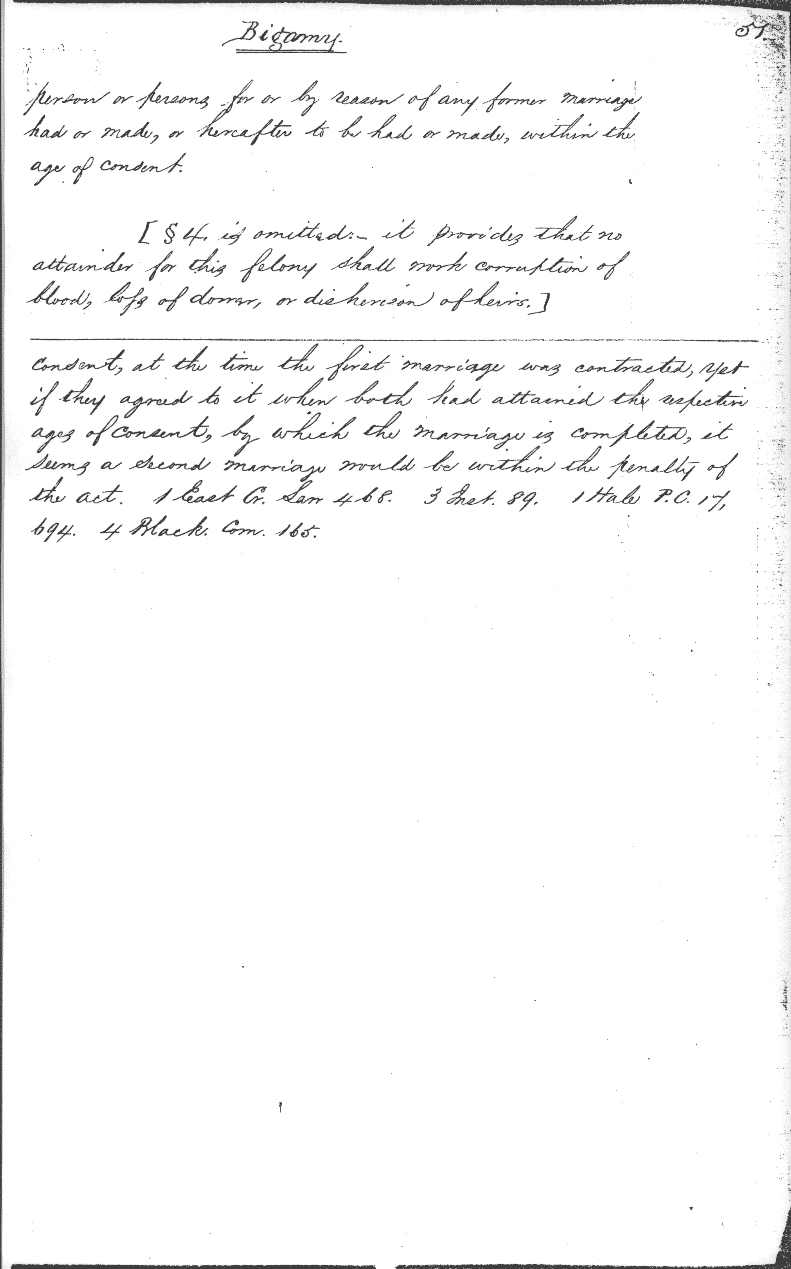 Bigamy.
57.
person or persons for or by reason of any former marriage
had or made, or hereafter to be had or made, within the
age of consent.
[§ 4. is omitted:- it provides that no
attainder for this felony shall work corruption of
blood, loss of dower, or disherison of heirs.]
consent, at the time the first marriage was contracted, yet
if they agreed to it when both had attained the respective
ages of consent, by which the marriage is completed, it
seems a second marriage would be within the penalty of
the act. 1 East Cr. Law 468. 3 Inst. 89. 1 Hale P.C. 17,
694. 4 Black. Com. 165.